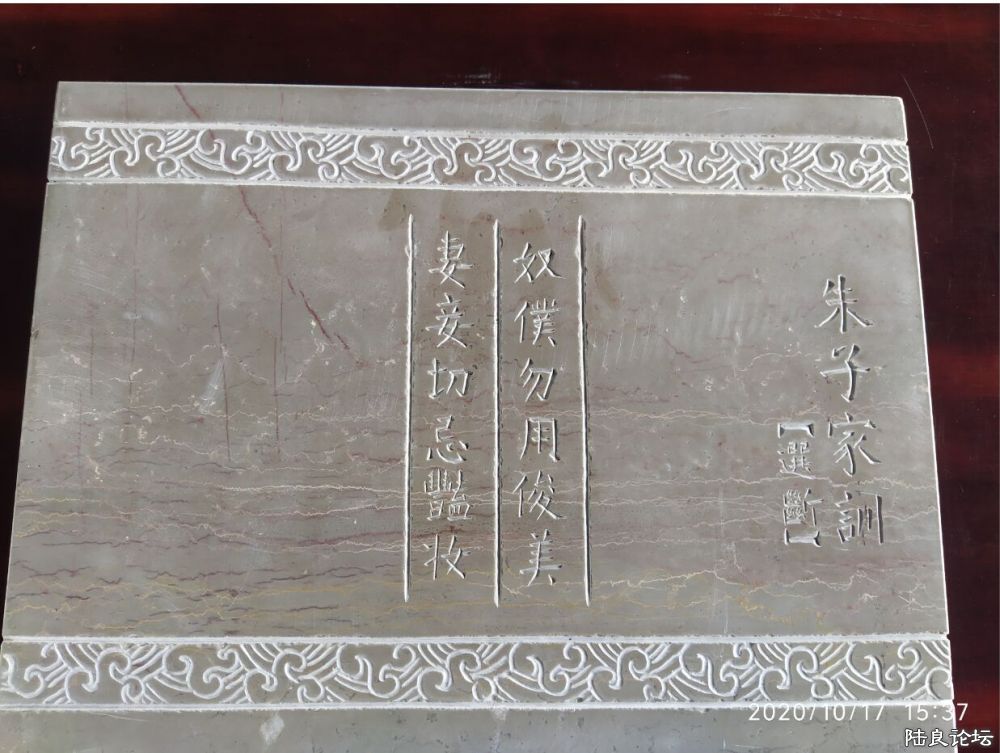 朱子家訓
【選斷】
奴僕勿用俊美
妻妾切忌豔妝
2020/10/17 15:37
陆良论坛